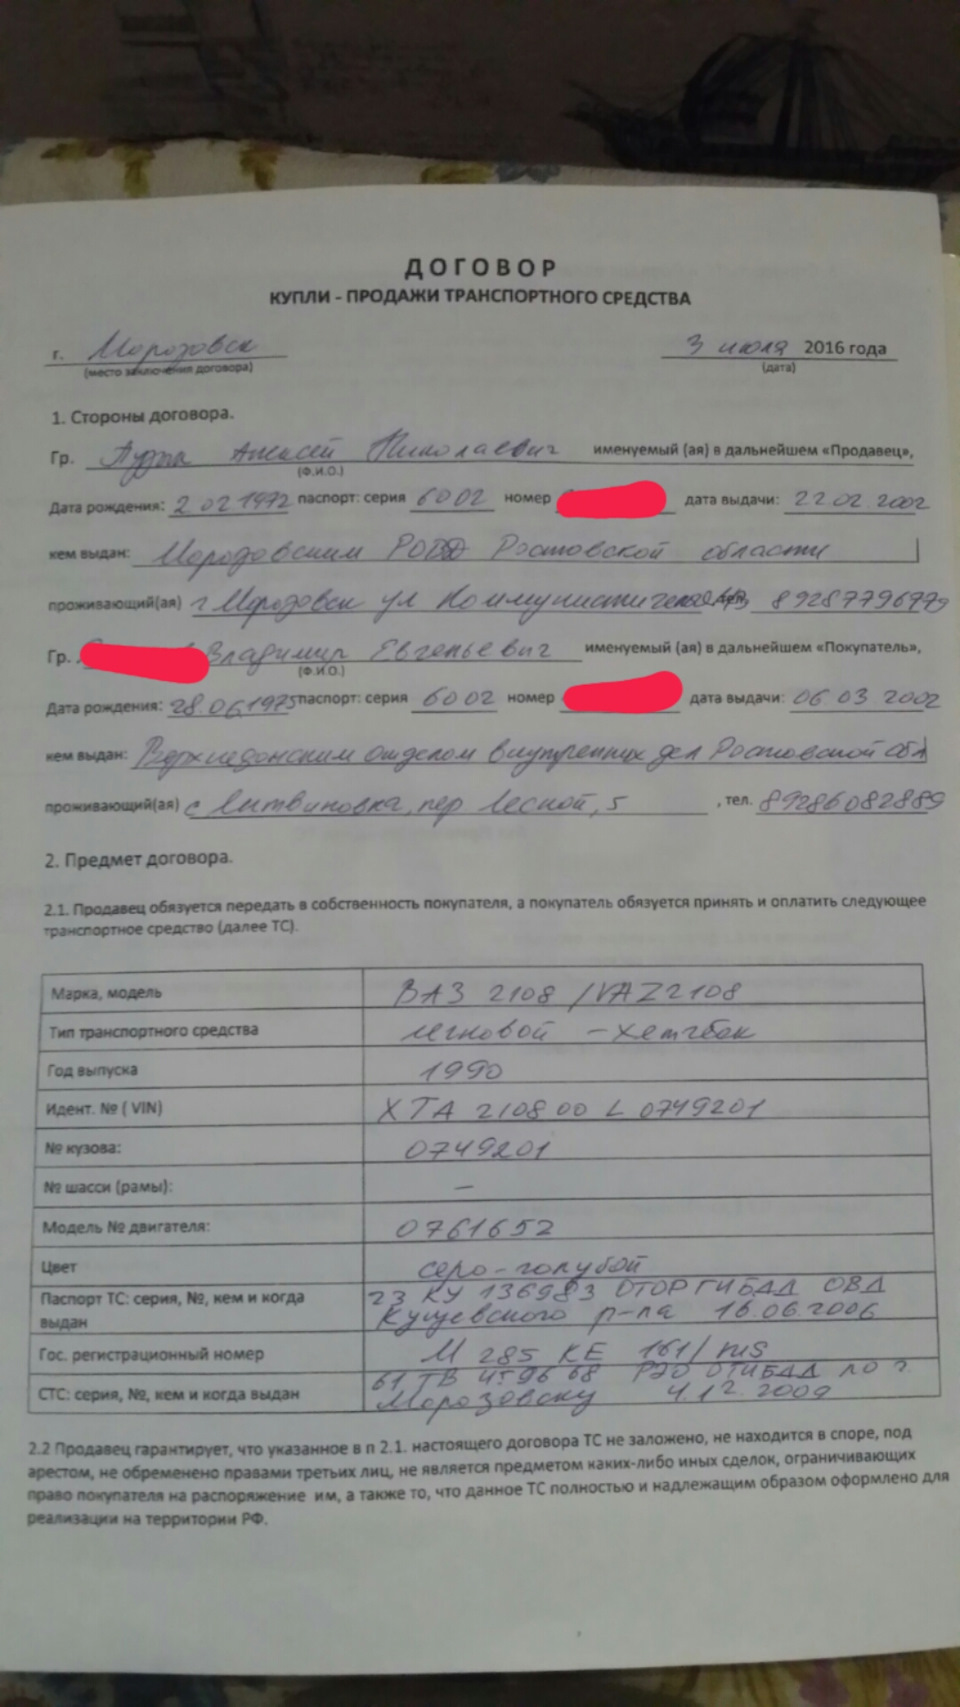 ДОГОВОР
КУПЛИ - ПРОДАЖИ ТРАНСПОРТНОГО СРЕДСТВА
г. Морозовск 3 июля 2016 года
(место заключения договора) (дата)
1. Стороны договора.
Гр. Алексей Николаевич именуемый (ая) в дальнейшем «Продавец»,
(Ф.И.О.)
Дата рождения: 2 02 1972 паспорт: серия 6002 номер дата выдачи: 22.02.2002
кем выдан: Морозовским РОВД Ростовской области
проживающий(ая) г Морозовск ул Коммунистическая 89287796779
Гр. Владимир Евгеньевич именуемый (ая) в дальнейшем «Покупатель»,
(Ф.И.О.)
Дата рождения: 28.06.1975 паспорт: серия 6002 номер дата выдачи: 06.03 2002
кем выдан: Верхнедонским отделом внутренних дел Ростовской обл
проживающий(ая) с Литвиновка, пер Лесной, 5 , тел. 89286082889
2. Предмет договора.
2.1. Продавец обязуется передать в собственность покупателя, а покупатель обязуется принять и оплатить следующее
транспортное средство (далее ТС).
Марка, модель ВАЗ 2108 /VAZ2108
Тип транспортного средства легковой - хетчбек
Год выпуска 1990
Идент. № ( VIN) XTA 210800 L 0749201
№ кузова: 0749201
№ шасси (рамы): —
Модель № двигателя: 0761652
Цвет серо-голубой
Паспорт ТС: серия, №, кем и когда 23 КУ 136983 ОТОР ГИБДД ОВД
выдан Кущевского р-на 16.06.2006
Гос. регистрационный номер М 285 КЕ 161/rus
СТС: серия, №, кем и когда выдан 61 ТВ РЭО ОГИБДД по г.
Морозовску 4.12.2009
2.2 Продавец гарантирует, что указанное в п 2.1. настоящего договора ТС не заложено, не находится в споре, под
арестом, не обременено правами третьих лиц, не является предметом каких-либо иных сделок, ограничивающих
право покупателя на распоряжение им, а также то, что данное ТС полностью и надлежащим образом оформлено для
реализации на территории РФ.